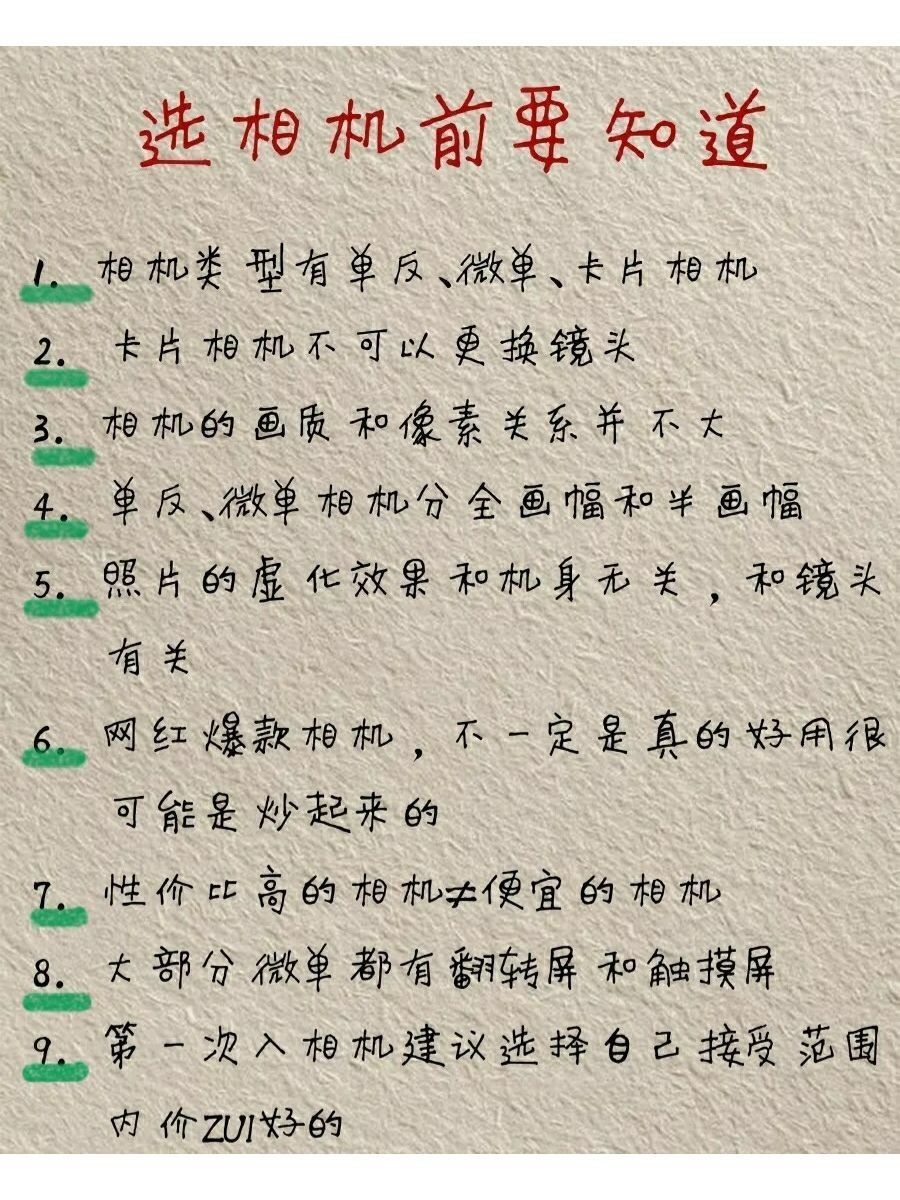 选相机前要知道
1. 相机类型有单反、微单、卡片相机
2. 卡片相机不可以更换镜头
3. 相机的画质和像素关系并不大
4. 单反、微单相机分全画幅和半画幅
5. 照片的虚化效果和机身无关，和镜头
有关
6. 网红爆款相机，不一定是真的好用很
可能是炒起来的
7. 性价比高的相机≠便宜的相机
8. 大部分微单都有翻转屏和触摸屏
9. 第一次入相机建议选择自己接受范围
内价ZUI好的